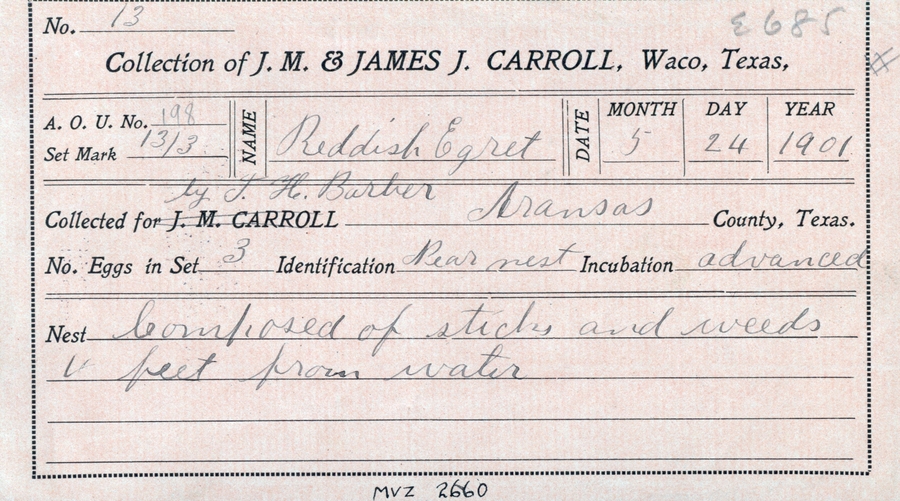 No. 13 E685
Collection of J. M. & JAMES J. CARROLL, Waco, Texas, #
A. O. U. No. 198
Set Mark 13/3
NAME Reddish Egret
DATE MONTH 5 DAY 24 YEAR 1901
by T. H. Barber
Collected for J. M. CARROLL Aransas County, Texas.
No. Eggs in Set 3 Identification Near nest Incubation advanced
Nest Composed of sticks and weeds
feet from water
MVZ 2660